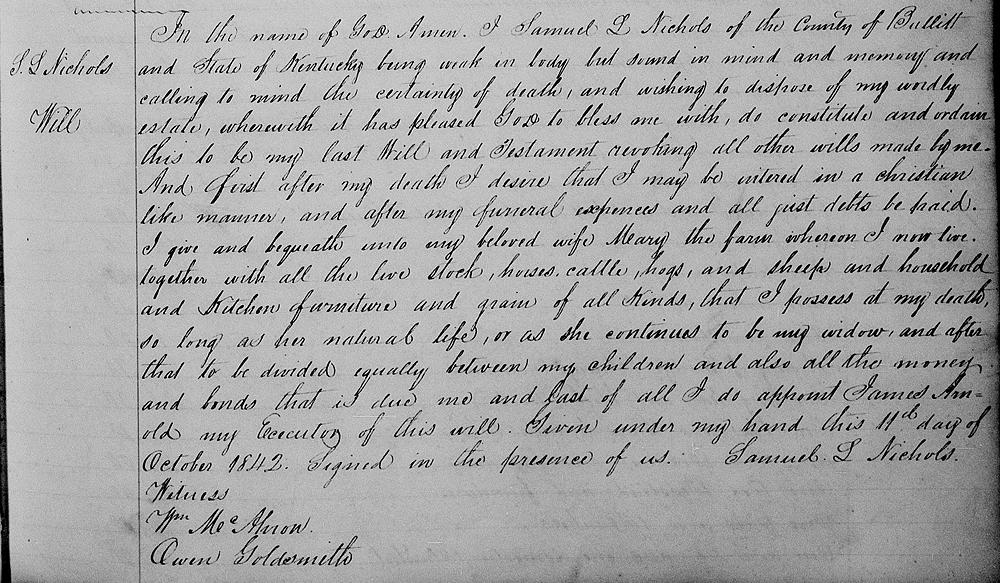 In the name of God Amen. I Samuel L Nichols of the County of Bullitt
S. L Nichols
and State of Kentucky being weak in body but sound in mind and memory and
calling to mind the certainty of death, and wishing to dispose of my wordly
Will
estate, wherewith it has pleased God to bless me with, do constitute and ordain
this to be my last Will and Testament revoking all other wills made by me.
And first after my death I desire that I may be intered in a christian
like manner, and after my funeral expences and all just debts be paid.
I give and bequeath unto my beloved wife Mary the farm whereon I now live.
together with all the live stock, horses. cattle, hogs, and sheep and household
and Kitchen furniture and grain of all Kinds, that I possess at my death,
so long as her natural life, or as she continues to be my widow, and after
that to be divided equally between my children and also all the money
and bonds that is due me and last of all I do appoint James Arn-
old my Executor of this will. Given under my hand this 11th day of
October 1842. Signed in the presence of us. Samuel. L Nichols.
Witness
Wm
Owen Goldsmith